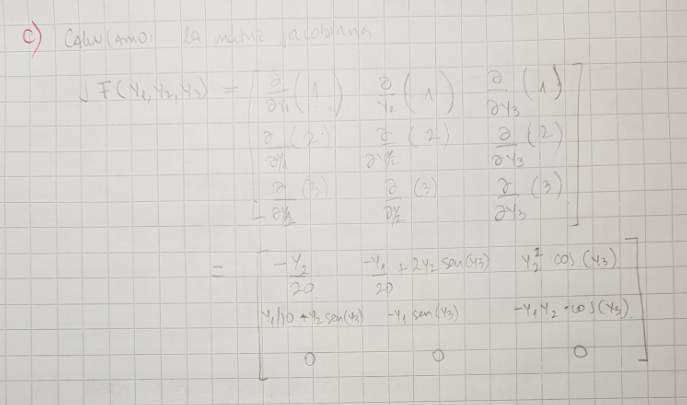 c) Calculamos la matriz jacobiana
J F(y₁, y₂, y₃) = [ ∂/∂y₁ (1) ∂/y₂ (1) ∂/∂y₃ (1)
∂/∂y₁ (2) ∂/∂y₂ (2) ∂/∂y₃ (2)
∂/ (3) ∂/∂y₂ (3) ∂/∂y₃ (3) ]
= [ -y₂/20 -y₁/20 + 2y₂ sen(y₃) y₂² cos(y₃)
y₁/10 - y₂ sen(y₃) -y₁ sen(y₃) -y₁y₂·cos(y₃)
0 0 0 ]